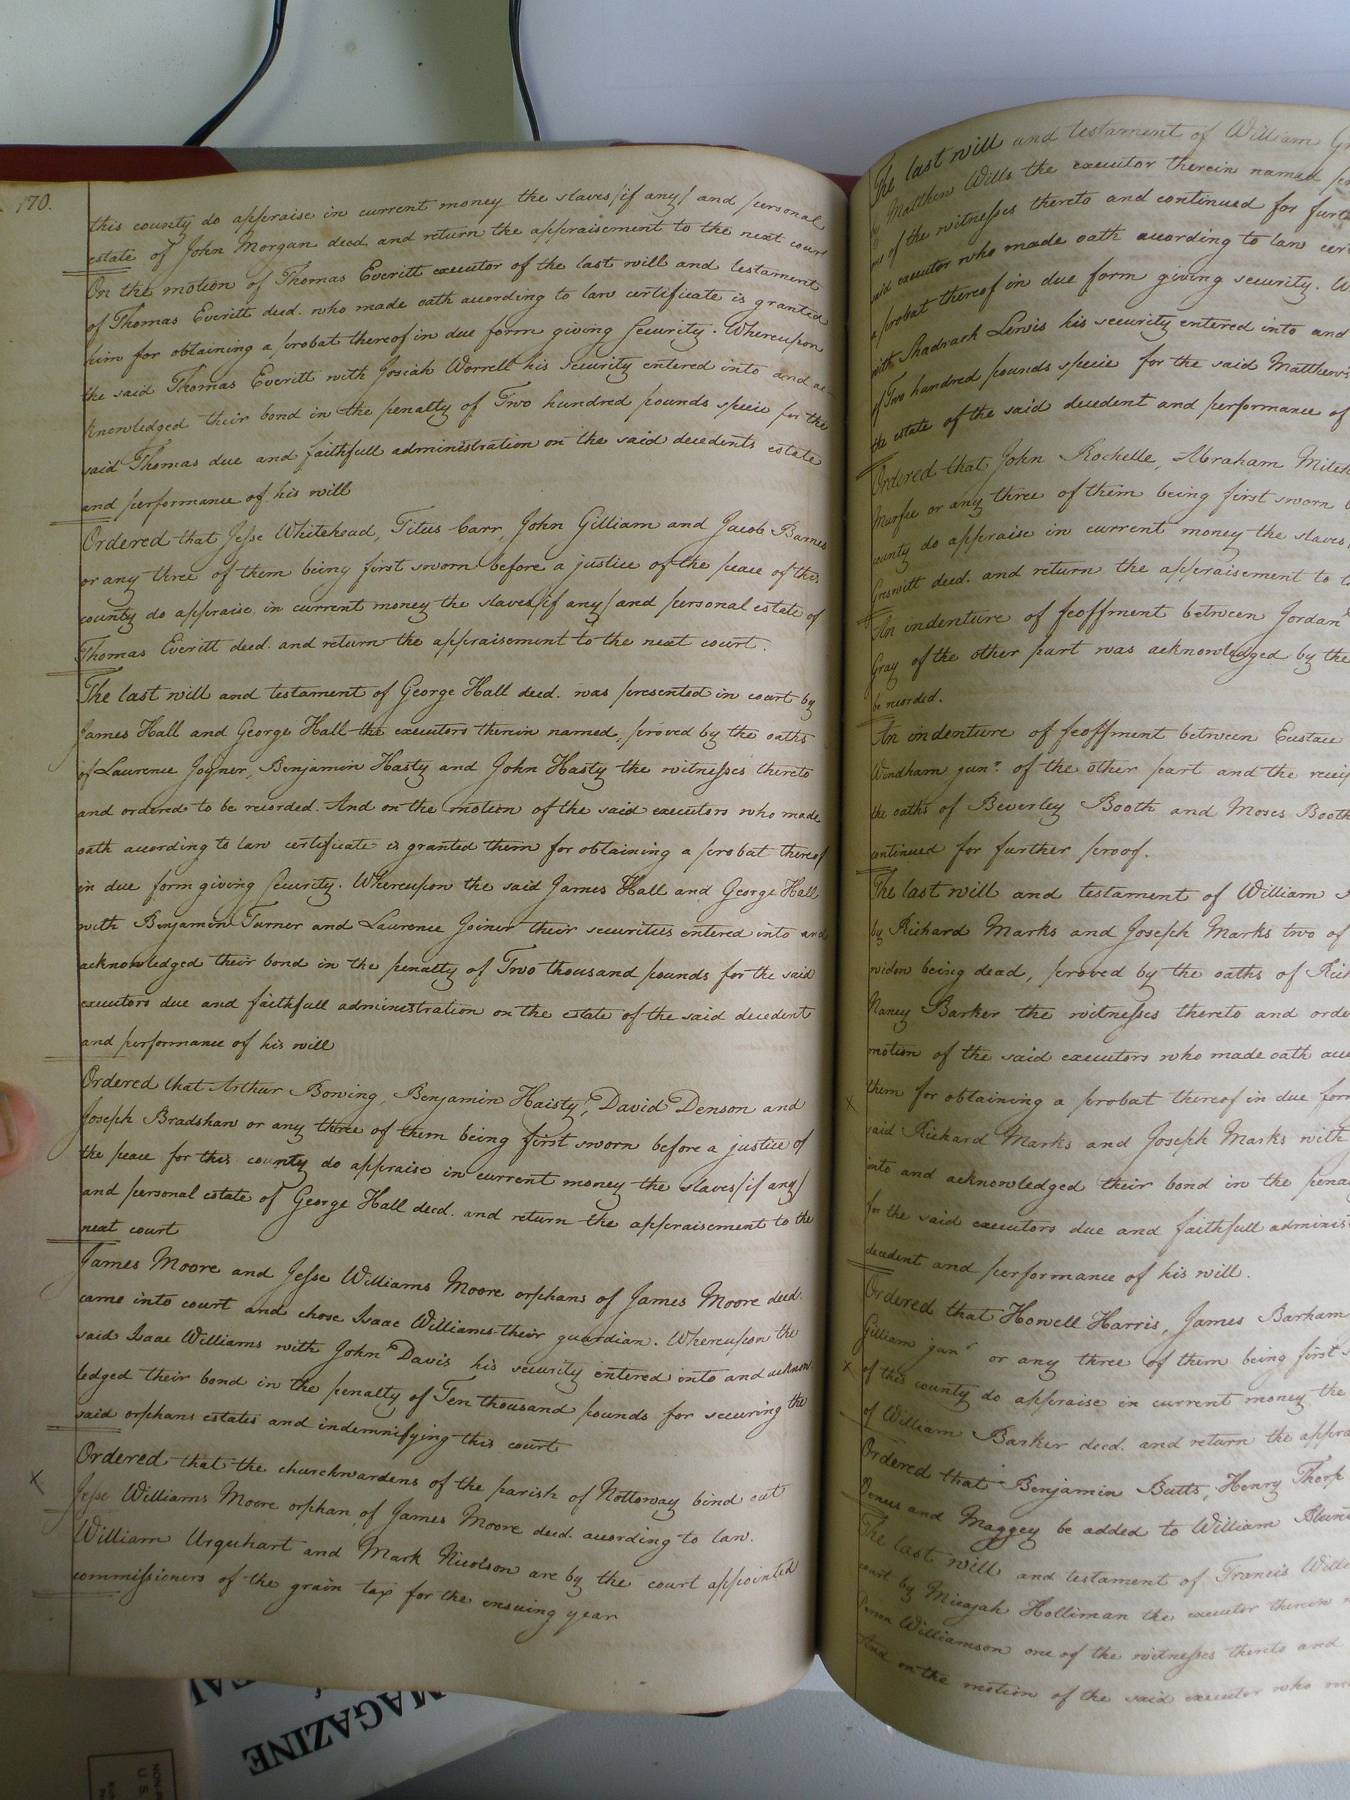 170.
this county do appraise in current money the slaves/if any/ and personal
estate of John Morgan decd. and return the appraisement to the next court
On the motion of Thomas Everitt executor of the last will and testament
of Thomas Everitt decd. who made oath according to law certificate is granted
him for obtaining a probat thereof in due form giving Security. Whereupon
the said Thomas Everitt with Josiah Worrell his Security entered into and ac-
knowledged their bond in the penalty of Two hundred pounds specie for the
said Thomas due and faithfull administration on the said decedents estate
and performance of his will
Ordered that Jesse Whitehead, Titus Carr, John Gilliam and Jacob Barnes
or any three of them being first sworn before a justice of the peace of this
county do appraise in current money the slaves/if any/ and personal estate of
Thomas Everitt decd. and return the appraisement to the next court.
The last will and testament of George Hall decd. was presented in court by
James Hall and George Hall the executors therein named, proved by the oaths
of Laurence Joyner, Benjamin Hasty and John Hasty the witnesses thereto
and ordered to be recorded. And on the motion of the said executors who made
oath according to law certificate is granted them for obtaining a probat thereof
in due form giving Security. Whereupon the said James Hall and George Hall
with Benjamin Turner and Laurence Joiner their securities entered into and
acknowledged their bond in the penalty of Two thousand pounds for the said
executors due and faithfull administration on the estate of the said decedent
and performance of his will
Ordered that Arthur Bowing, Benjamin Haisty, David Denson and
Joseph Bradshaw or any three of them being first sworn before a justice of
the peace for this county do appraise in current money the slaves/if any/
and personal estate of George Hall decd. and return the appraisement to the
next court
James Moore and Jesse Williams Moore orphans of James Moore decd.
came into court and chose Isaac Williams their guardian. Whereupon the
said Isaac Williams with John Davis his security entered into and acknow
ledged their bond in the penalty of Ten thousand pounds for securing the
said orphans estates and indemnifying this court
Ordered that the churchwardens of the parish of Nottoway bind out
Jesse Williams Moore orphan of James Moore decd. according to law.
William Urquhart and Mark Nicolson are by the court appointed
commissioners of the grain tax for the ensuing year
The last will and testament of William
by Matthew Wills the executor therein named
of the witnesses thereto and continued for
said executor who made oath according to law
a probat thereof in due form giving security.
with Shadrach Lewis his security entered into and
of Two hundred pounds specie for the said Matthew's
the estate of the said decedent and performance of
Ordered that John Rochelle, Abraham
or any three of them being first sworn
county do appraise in current money the slaves
decd. and return the appraisement to
An indenture of feoffment between Jordan
Gray of the other part was acknowledged by the
be recorded.
An indenture of feoffment between Eustace
Windham junr. of the other part and the
the oaths of Beverley Booth and Moses Booth
continued for further proof.
The last will and testament of William
by Richard Marks and Joseph Marks two of
widow being dead, proved by the oaths of
Nancy Barker the witnesses thereto and
motion of the said executors who made oath
them for obtaining a probat thereof in due
said Richard Marks and Joseph Marks with
into and acknowledged their bond in the
for the said executors due and faithfull
decedent and performance of his will.
Ordered that Howell Harris, James Barham
Gilliam junr. or any three of them being first
of this county do appraise in current money the
of William Barker decd. and return the
Ordered that Benjamin Butts, Henry Thorp
and Maggey be added to William
The last will and testament of Francis
court by Micajah Holliman the executor therein
Williamson one of the witnesses thereto and
And on the motion of the said executor who
MAGAZINE